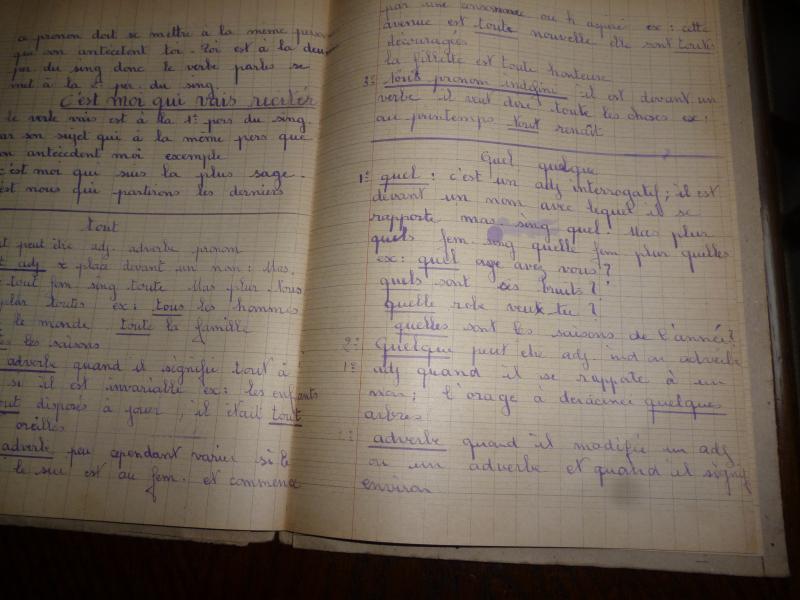 a pronom doit se mettre à la même pers
que son antécédent toi. Toi est à la deu
per. du sing donc le verbe parles se
met à la 2e per. du sing.
C'est moi qui vais reciter
le verbe vais est à la 1e pers du sing.
car son sujet qui à la même pers que
on antécédent moi exemple
c'est moi qui suis la plus sage.
est nous qui partirons les derniers
tout
ut peut être adj. adverbe pronom
t adj x place devant un nom: Mas.
tout fem sing toute Mas plur tous
plur toutes ex: tous les hommes
le monde toute la famille
es les saisons
adverbe quand il signifie tout à
si il est invariable ex: les enfants
out disposés à jouer, il était tout
oreilles
adverbe peu cependant varier si le
le sui est au fem. et commence
par une consonne ou h aspiré ex: cette
avenue est toute nouvelle elle sont toutes
découragés
la fillette est toute honteuse
3: tout pronom indéfini il est devant un
verbe il veut dire toute les choses ex:
au printemps tout renaît
Quel quelque
1: quel: c'est un adj interrogatif; il est
devant un nom avec lequel il se
rapporte mas sing quel. Mas plur
quels fem. sing quelle fem plur quelles
ex: quel age avez vous?
quels sont ses bruits?
quelle robe veux tu?
quelles sont les saisons de l'année?
2: Quelque peut être adj ind ou adverbe
1: adj quand il se rapporte à un
nom; l'orage à déraciné quelques
arbres
adverbe quand il modifie un adj
ou un adverbe et quand il signif
environ